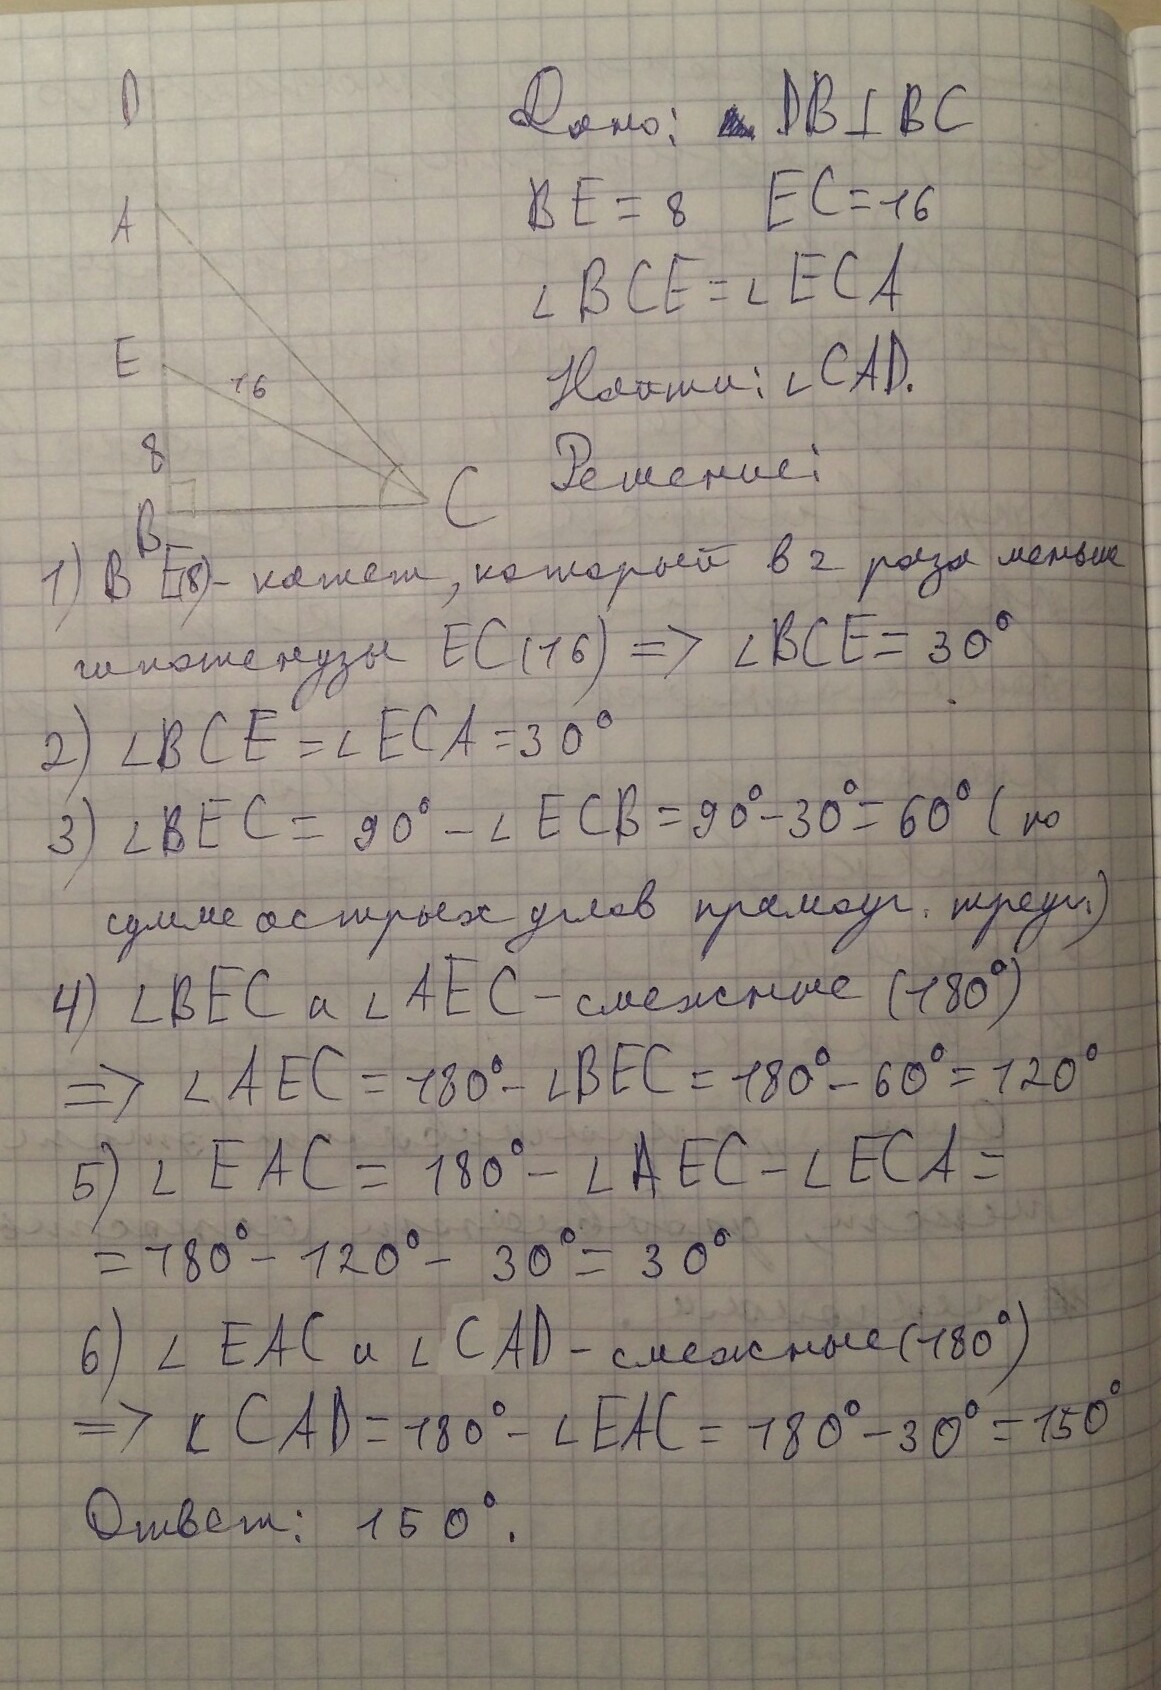 D
A
E
16
8
B
C
Дано: DB⊥BC
BE=8 EC=16
∠BCE=∠ECA
Найти: ∠CAD.
Решение:
1) BE(8)- катет, который в 2 раза меньше
гипотенузы EC(16) => ∠BCE=30°
2) ∠BCE=∠ECA=30°
3) ∠BEC= 90°-∠ECB=90°-30°=60° (по
сумме острых углов прямоуг. треуг.)
4) ∠BEC и ∠AEC-смежные (180°)
=> ∠AEC=180°-∠BEC=180°-60°=120°
5) ∠EAC= 180°-∠AEC-∠ECA=
=180°-120°- 30°= 30°
6) ∠EAC и ∠CAD-смежные(180°)
=> ∠CAD=180°-∠EAC=180°-30°=150°
Ответ: 150°.